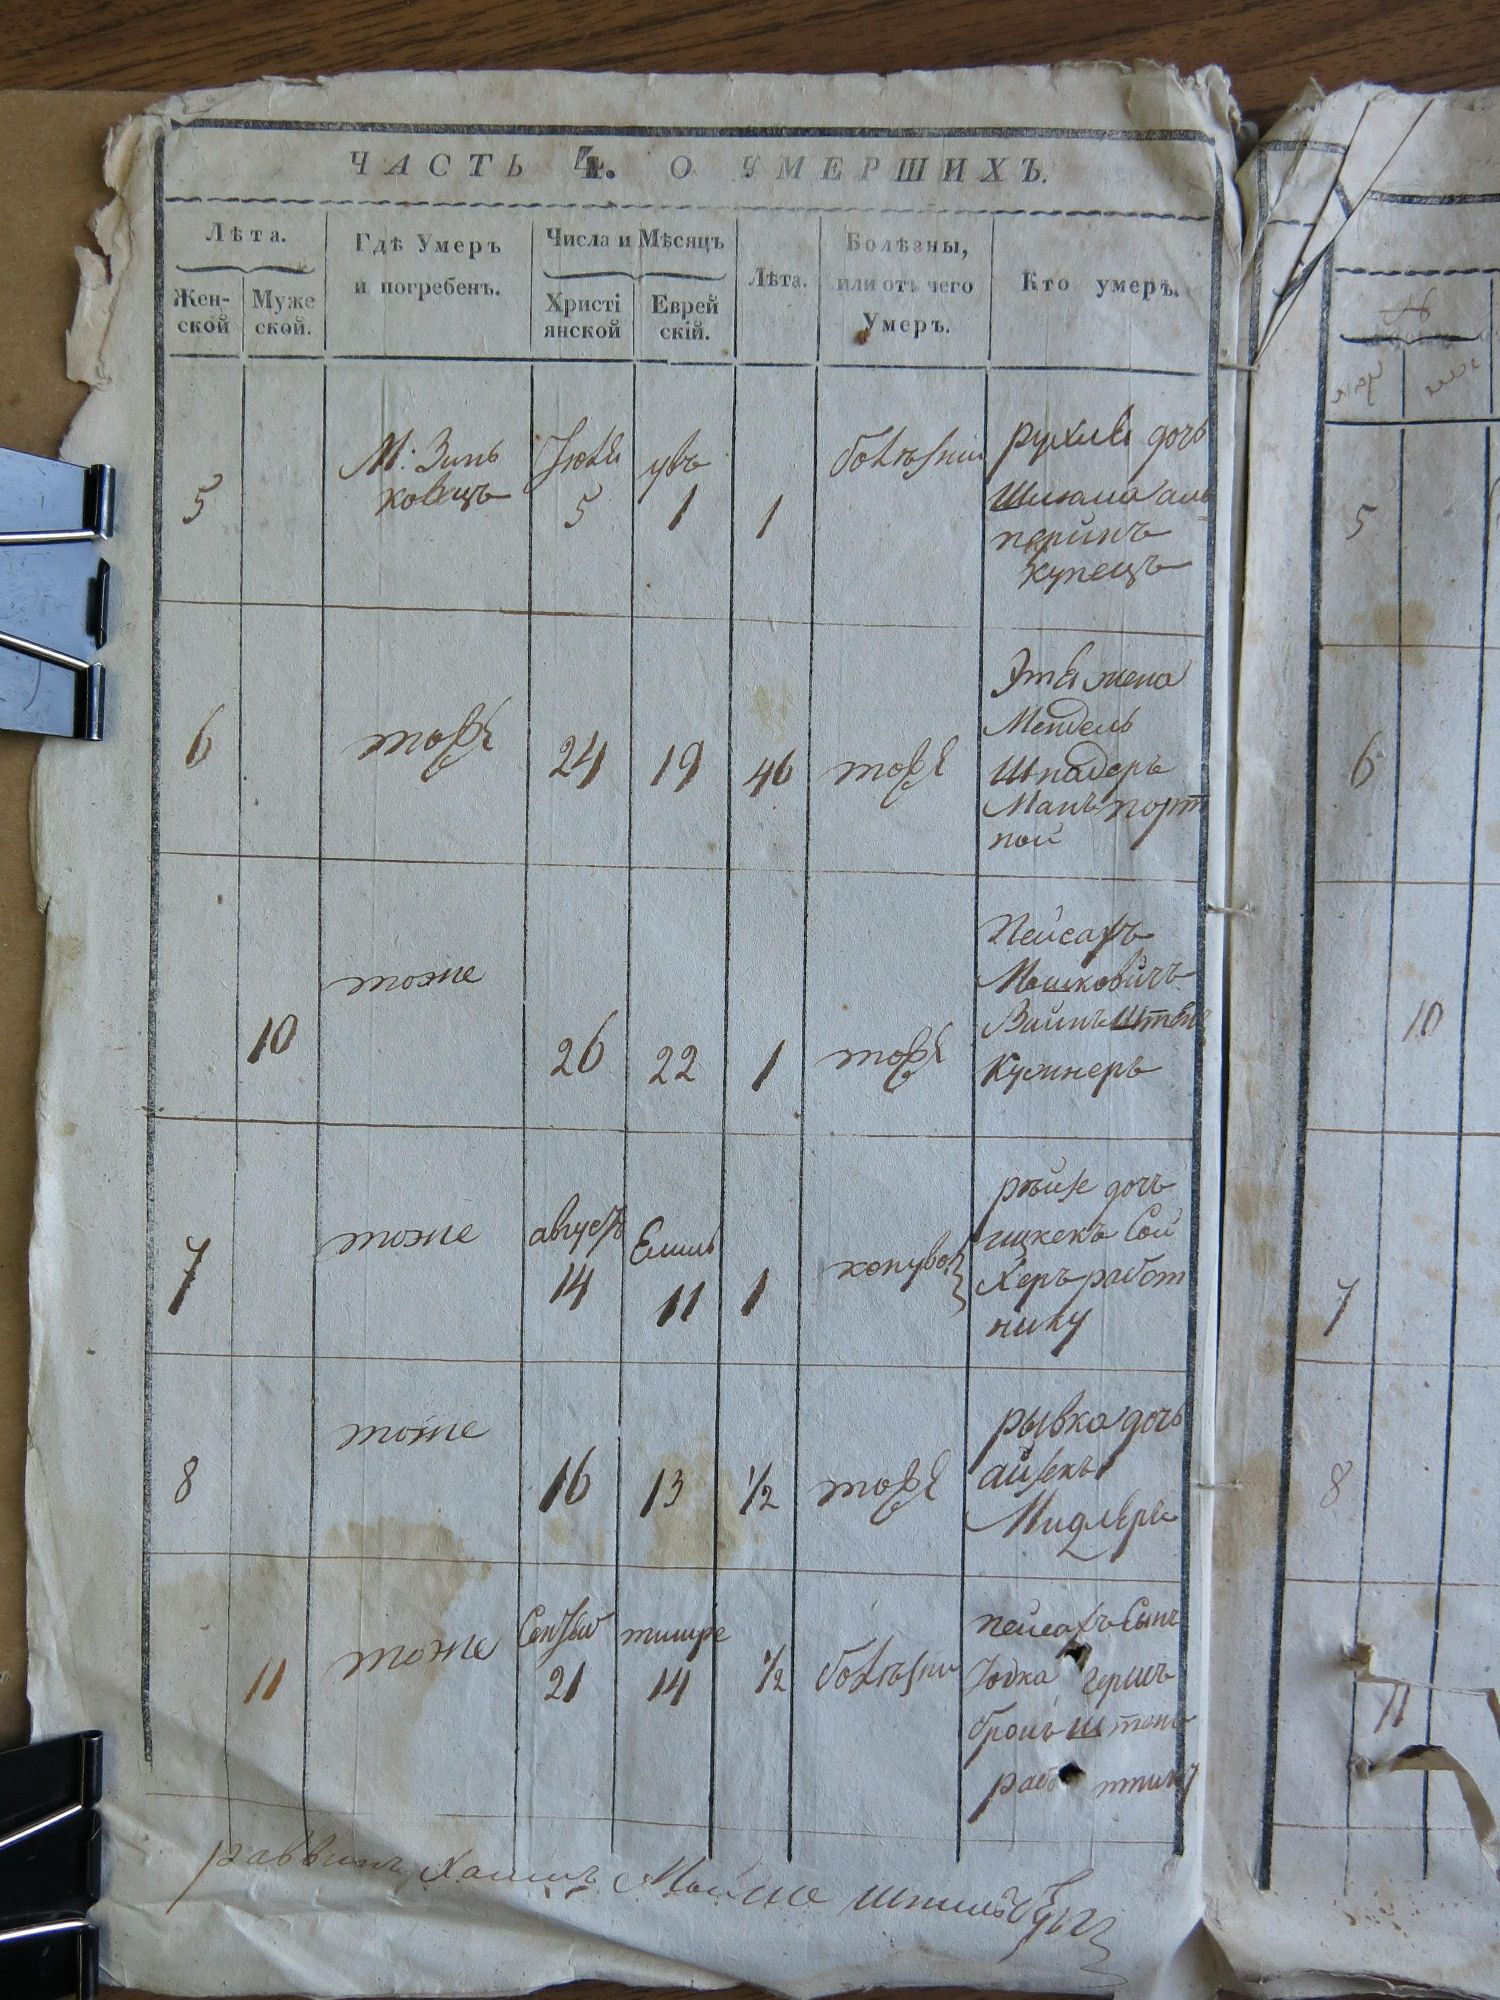 ЧАСТЬ 4. О УМЕРШИХЪ.
Лѣта.
Жен-
ской
Муже
ской.
Гдѣ Умеръ
и погребенъ.
Числа и Мѣсяцъ
Христі
янской
Еврей
скій.
Лѣта.
Болѣзны,
или отъ чего
Умеръ.
Кто умеръ.
5
М: Зинь
ковецъ
Июля
5
увъ
1
1
болѣзни
рухля дочь
Шлюма аль
перинъ
купецъ
6
тоже
24
19
46
тоже
Этля жена
Мендель
Шнадеръ
Манъ порт
ной
10
тоже
26
22
1
тоже
Пейсахъ
Мошковичъ
Вайнъ Штейнъ
Кушнеръ
7
тоже
августъ
14
Елиль
11
1
рѣйзе дочь
ицкекъ Сой
Херъ работ
нику
8
тоже
16
13
1/2
тоже
рывка дочь
айзекъ
Мидлеръ
11
тоже
21
тишре
14
1/2
болѣзни
пейсахъ Сынъ
Іовка гершъ
бронъ штейнъ
раб тнику
раввинъ Хаимъ Мойше
5
6
10
7
8
11